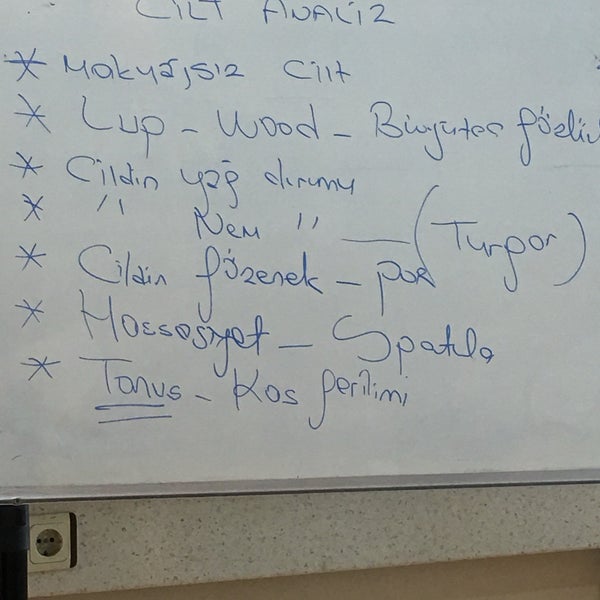 CİLT ANALİZ
* Makyajsız Cilt
* Lup - Wood - Büyüteç gözlü
* Cildin yağ durumu
* " Nem " — (Turgor)
* Cildin gözenek - por
* Hassasiyet - Spatula
* Tonus - Kas gerilimi